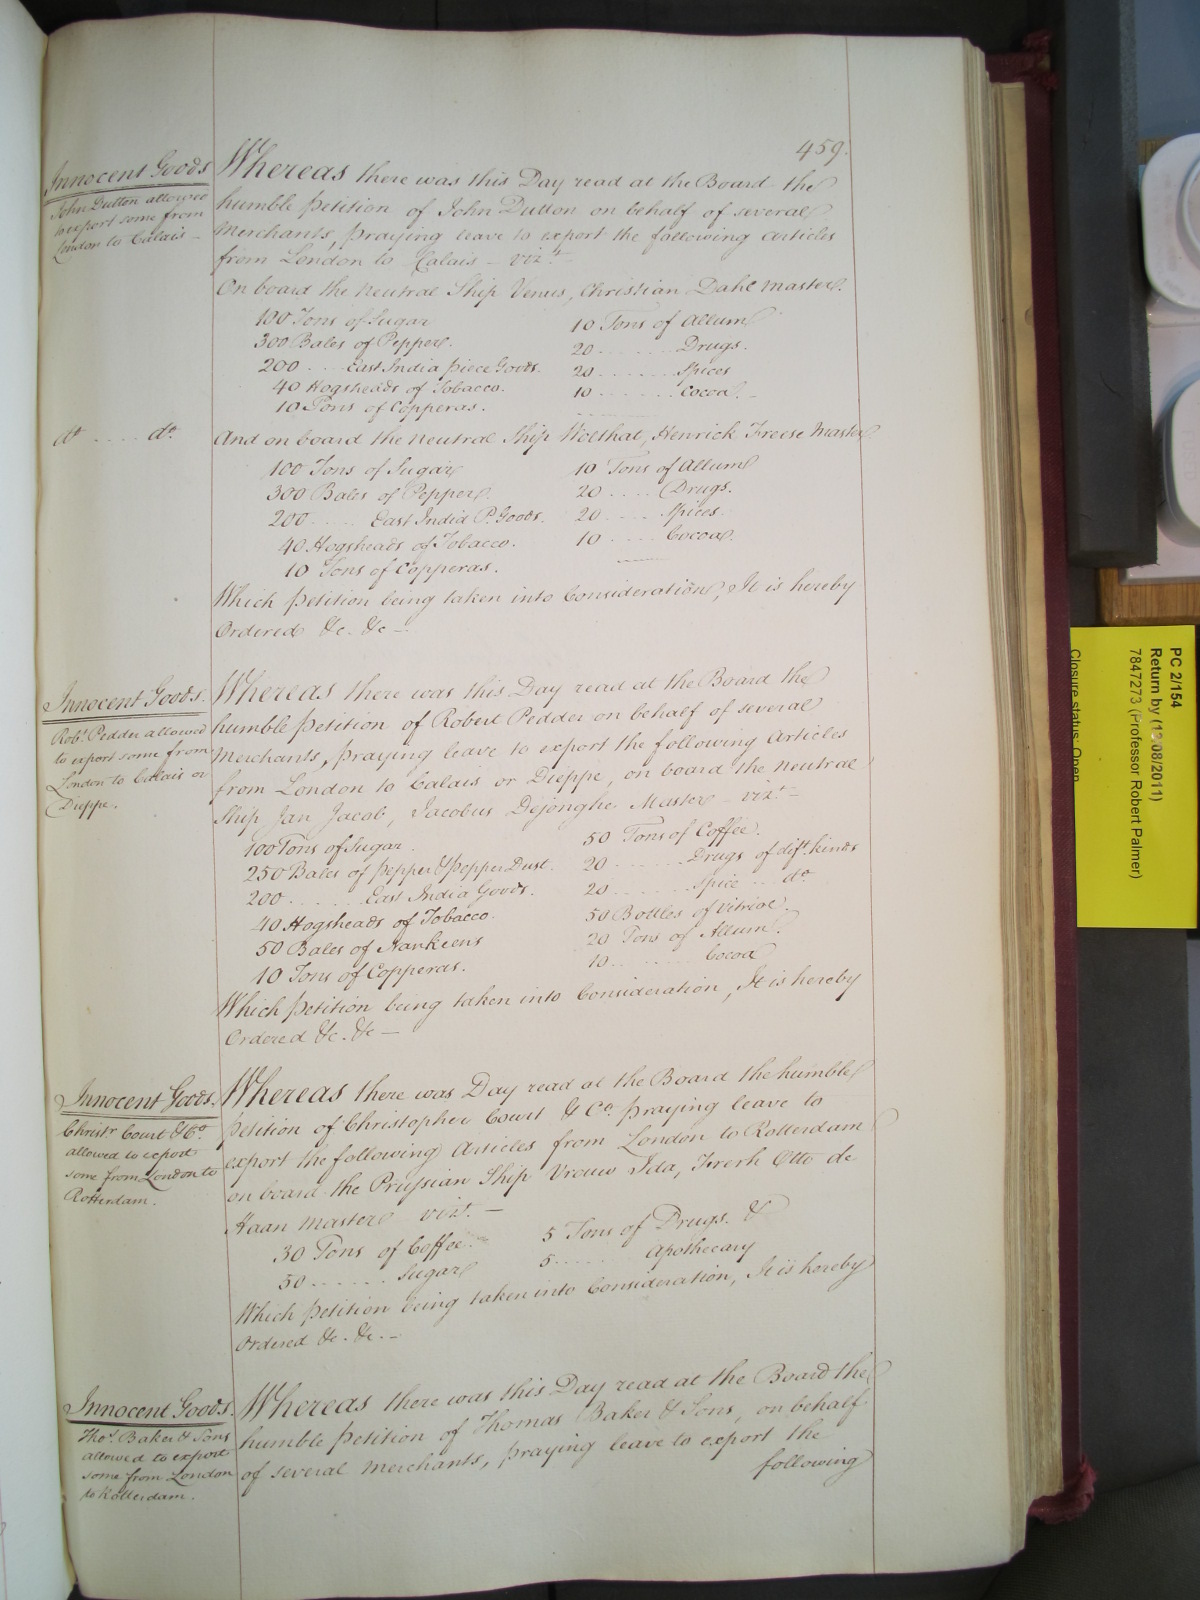 459.
Innocent Goods
John Dutton allowed
to export some from
London to Calais –
Whereas there was this Day read at the Board the
humble Petition of John Dutton on behalf of several
Merchants, praying leave to export the following Articles
from London to Calais – vizt. –
On board the Neutral Ship Venus, Christian Dahl Master.
100 Tons of Sugar
300 Bales of Pepper.
200 .... East India piece Goods.
40 Hogsheads of Tobacco.
10 Tons of Copperas.
10 Tons of Allum
20 ....... Drugs.
20 ....... Spices
10 ....... Cocoa. –
do .... do.
And on board the Neutral Ship Wolthat, Henrick Freese Master
100 Tons of Sugar
300 Bales of Pepper.
200 ..... East India P. Goods.
40 Hogsheads of Tobacco.
10 Tons of Copperas.
10 Tons of Allum
20 .... Drugs.
20 .... Spices.
10 .... Cocoa.
Which Petition being taken into Consideration, It is hereby
Ordered &c. &c –
Innocent Goods.
Robt. Pedder allowed
to export some from
London to Calais or
Dieppe.
Whereas there was this Day read at the Board the
humble Petition of Robert Pedder on behalf of several
Merchants, praying leave to export the following Articles
from London to Calais or Dieppe, on board the Neutral
Ship Jan Jacob, Jacobus Dejonghe Master – vizt. –
100 Tons of Sugar.
250 Bales of Pepper & Pepper Dust.
200 ........ East India Goods.
40 Hogsheads of Tobacco.
50 Bales of Nankeens
10 Tons of Copperas.
50 Tons of Coffee.
20 ....... Drugs of dift. kinds
20 ....... Spice ... do.
50 Bottles of Vitriol.
20 Tons of Allum.
10 ......... Cocoa
Which Petition being taken into Consideration, It is hereby
Ordered &c. &c –
Innocent Goods.
Christr. Court & Co.
allowed to export
some from London to
Rotterdam.
Whereas there was Day read at the Board the humble
Petition of Christopher Court & Co. praying leave to
export the following Articles from London to Rotterdam
on board the Prussian Ship Vrouw Ida, Frerk Otto de
Haan Master vizt. –
30 Tons of Coffee. –
50 ....... Sugar
5 Tons of Drugs. &
5 ..... Apothecary
Which Petition being taken into Consideration, It is hereby
Ordered &c. &c. –
Innocent Goods.
Thos. Baker & Sons
allowed to export
some from London
to Rotterdam.
Whereas there was this Day read at the Board the
humble Petition of Thomas Baker & Sons, on behalf
of several Merchants, praying leave to export the
following
PC 2/154
Return by (12/08/2011)
7847273 (Professor Robert Palmer)
Closure status: Open